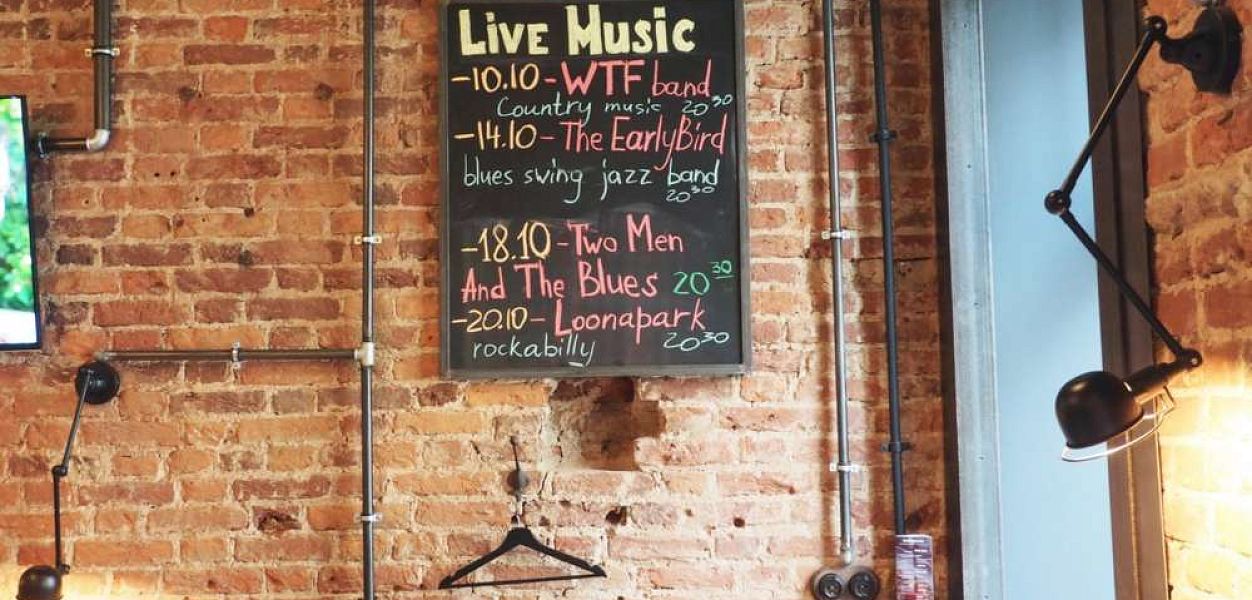 Live Music
-10.10-WTF band
Country music 20³⁰
-14.10-The EarlyBird
blues swing jazz band
20³⁰
-18.10-Two Men
And The Blues 20³⁰
-20.10-Loonapark
rockabilly 20³⁰